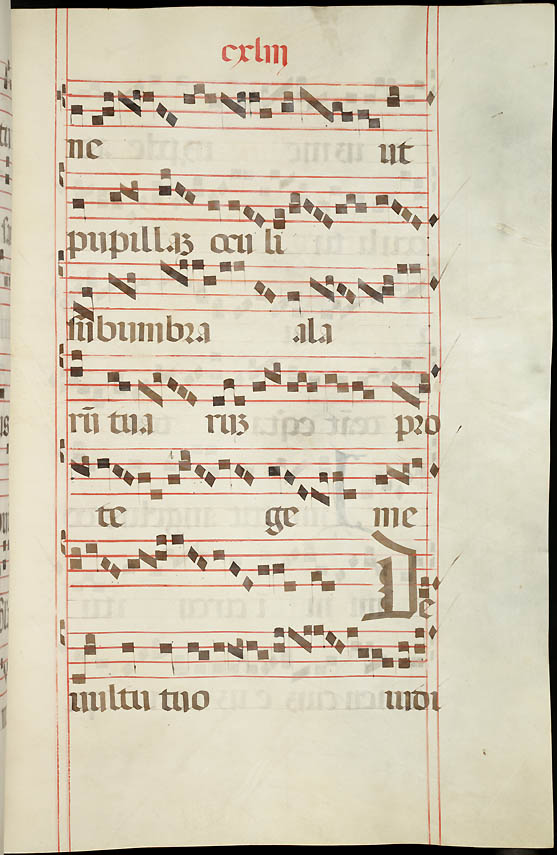 cxliii
ne ut
pupillaʒ ocu li
sūbumbra ala
rū tua ruʒ pro
te ge me
De
uultu tuo iudi